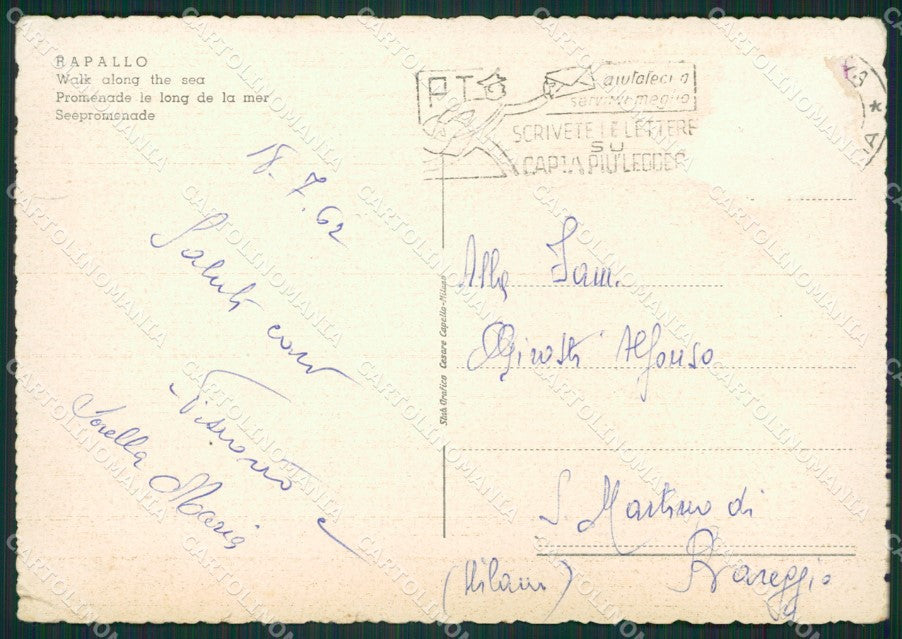 RAPALLO
Walk along the sea
Promenade le long de la mer
Seepromenade
PT
aiutateci a
servirvi meglio
SCRIVETE LE LETTERE
SU
CARTA PIÙ LEGGERA
18.7.62
Saluti cari
e
Sorella Maria
Stab. Grafico Cesare Capello - Milano
Alla Fam.
Alfonso
S. Martino di
Bareggio
(Milano)
CARTOLINOMANIA